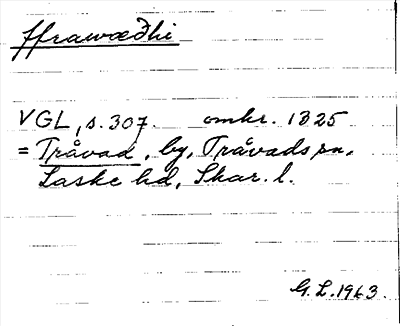 ffrawæðhi
VGL, s. 307. omkr. 1325
= Tråvad, by, Tråvads sn,
Laske hd, Skar. l.
G.L. 1963.